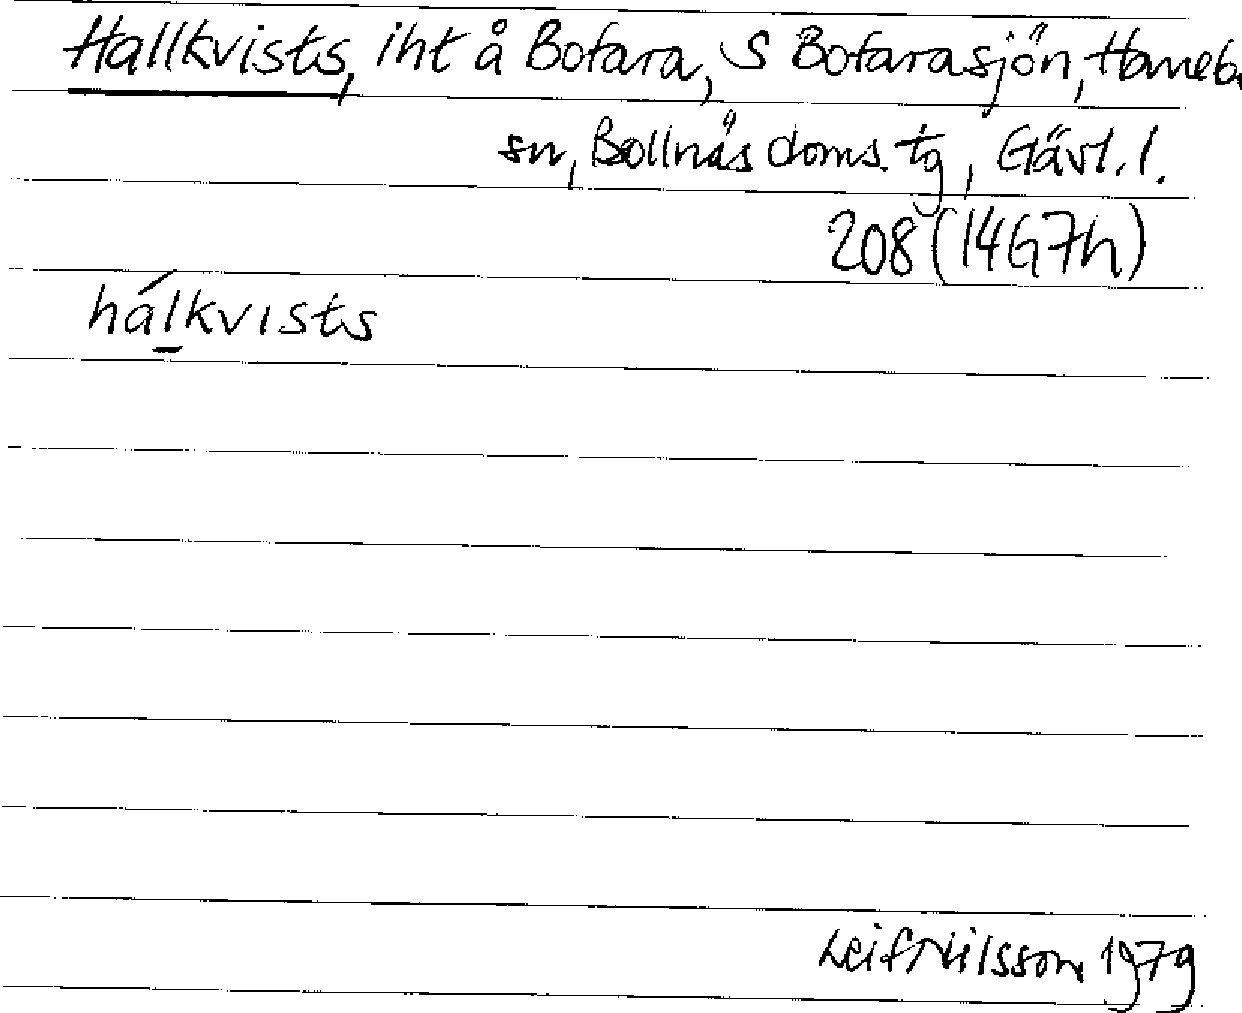 Hallkvists, iht å Bofara, S Bofarasjön, Haneb.
sn, Bollnäs doms. tg, Gävl. l.
208 (14G7h)
hálkvists
Leif Nilsson 1979